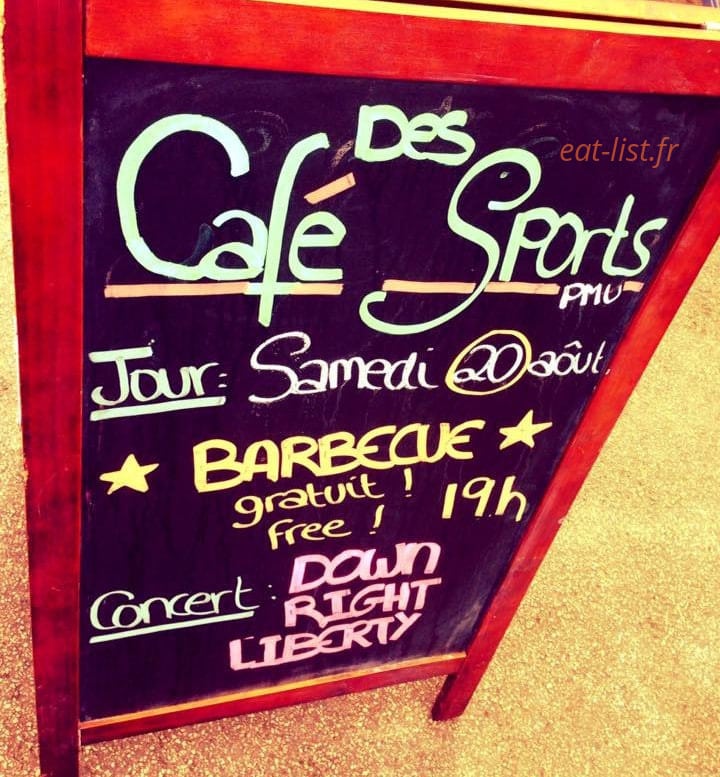 Café DES Sports
PMU
eat-list.fr
Jour: Samedi 20 août.
BARBECUE
gratuit ! 19h
free !
Concert: DOWN
RIGHT
LIBERTY